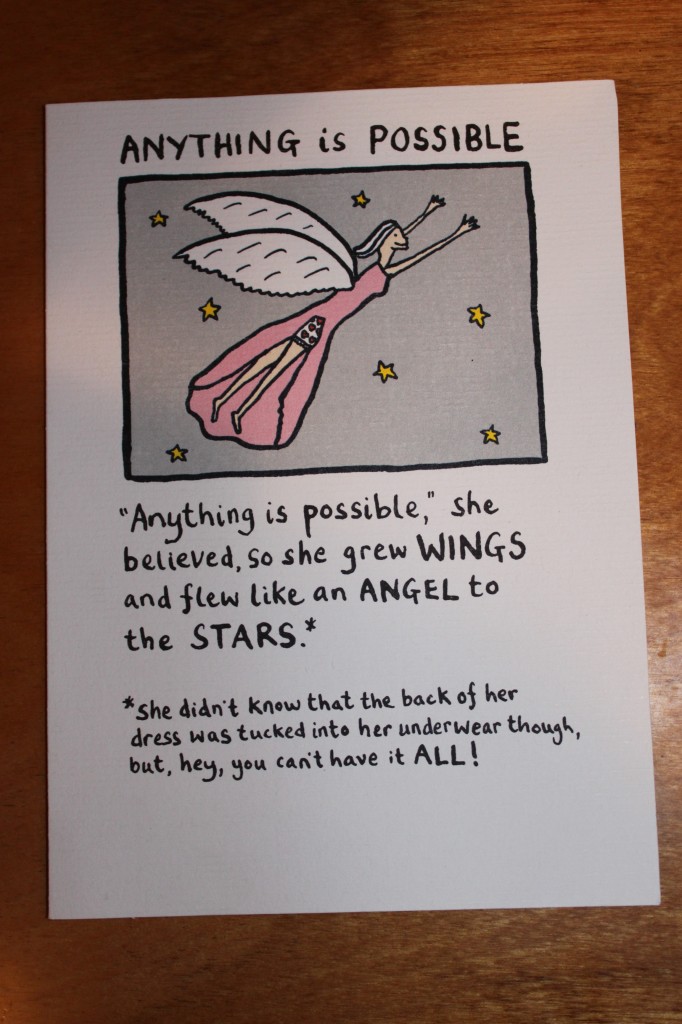 ANYTHING is POSSIBLE
"Anything is possible," she
believed, so she grew WINGS
and flew like an ANGEL to
the STARS.*
*She didn't know that the back of her
dress was tucked into her underwear though,
but, hey, you can't have it ALL!